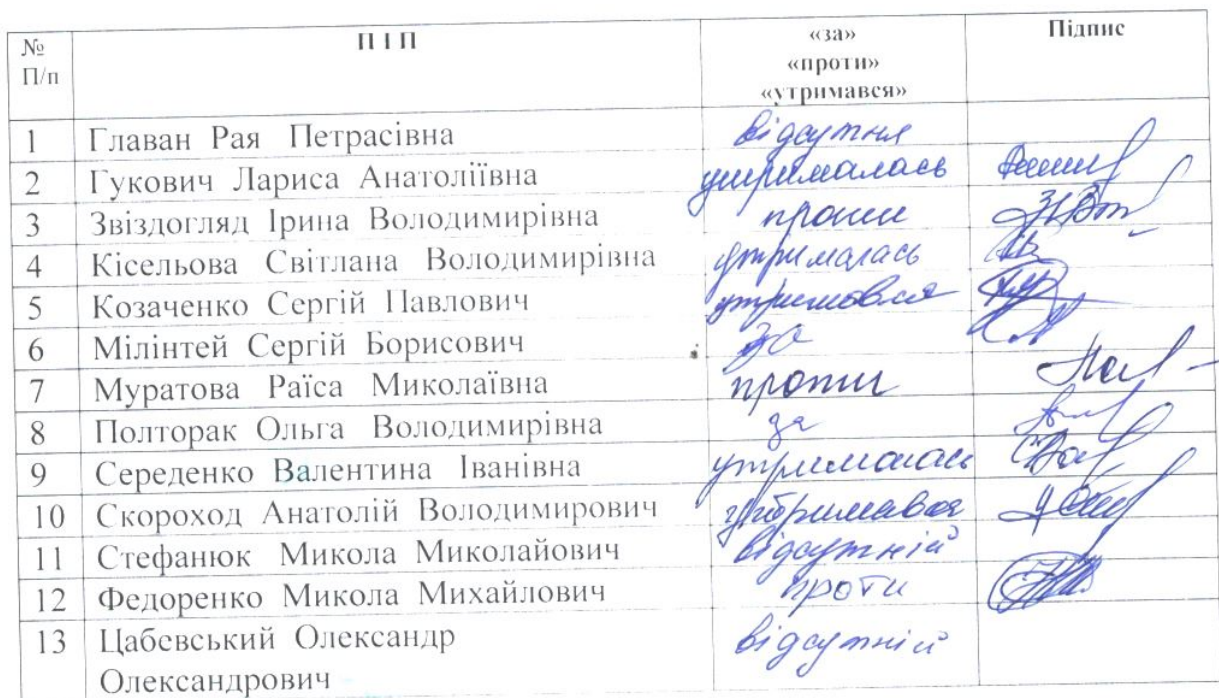 № П/п П І П «за» «проти» «утримався» Підпис
1 Главан Рая Петрасівна відсутня
2 Гукович Лариса Анатоліївна утрималась
3 Звіздогляд Ірина Володимирівна проти
4 Кісельова Світлана Володимирівна утрималась
5 Козаченко Сергій Павлович утримався
6 Мілінтей Сергій Борисович за
7 Муратова Раїса Миколаївна проти
8 Полторак Ольга Володимирівна за
9 Середенко Валентина Іванівна утрималась
10 Скороход Анатолій Володимирович утримався
11 Стефанюк Микола Миколайович відсутній
12 Федоренко Микола Михайлович проти
13 Цабєвський Олександр відсутній
Олександрович